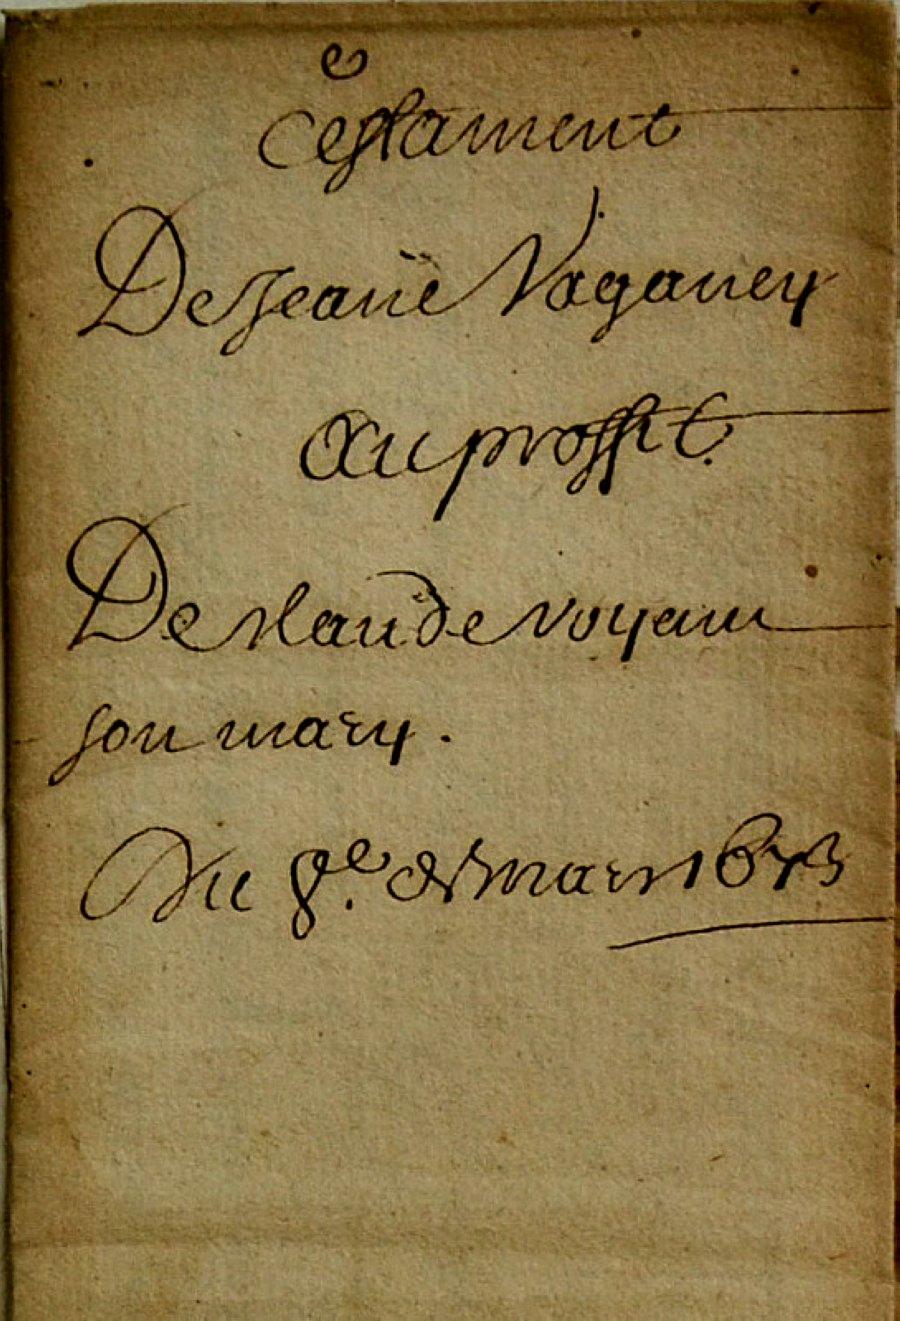 Testament
De Jeane Vaganey
Au proffit
De Claude Voyant
son mary.
Du 8e. de mars 1673